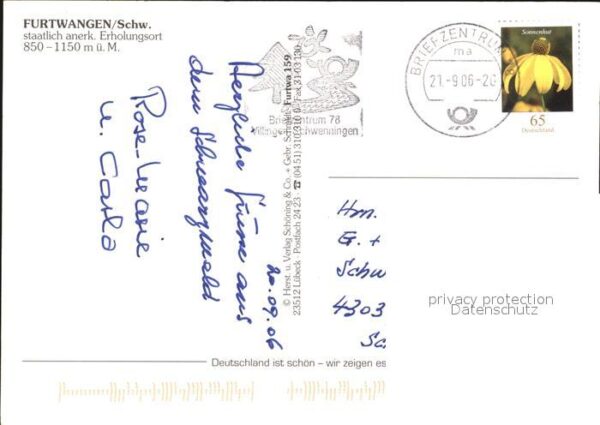 FURTWANGEN/Schw.
staatlich anerk. Erholungsort
850 – 1150 m ü. M.
Herzliche Grüsse aus
dem Schwarzwald
20.09.06
Rose-Marie
u. Carla
© Herst. u. Verlag Schöning & Co. + Gebr. Schmidt
23512 Lübeck · Postfach 24 23 · ☎ (04 51) 3 10 310 · Fax 31 03 130
Furtwa 159
Briefzentrum 78
Villingen-Schwenningen
BRIEFZENTRUM
ma
21.-9.06-20
Sonnenhut
65
Deutschland
Hrn.
G. +
Schw
4303
Sc
privacy protection
Datenschutz
Deutschland ist schön – wir zeigen es